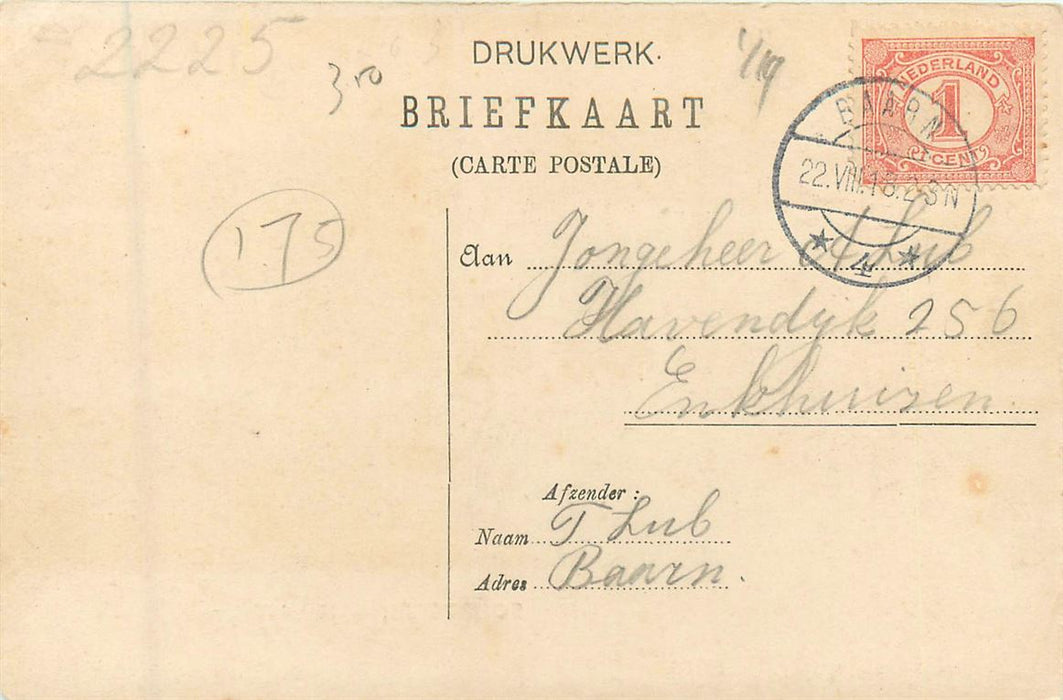 2225
3,50
DRUKWERK.
1/19
BRIEFKAART
(CARTE POSTALE)
NEDERLAND
1
CENT
BAARN
22.VIII.13.2-3N
4
175
Aan Jongeheer A Lub
Havendyk 256
Enkhuizen
Afzender:
Naam T Lub
Adres Baarn.